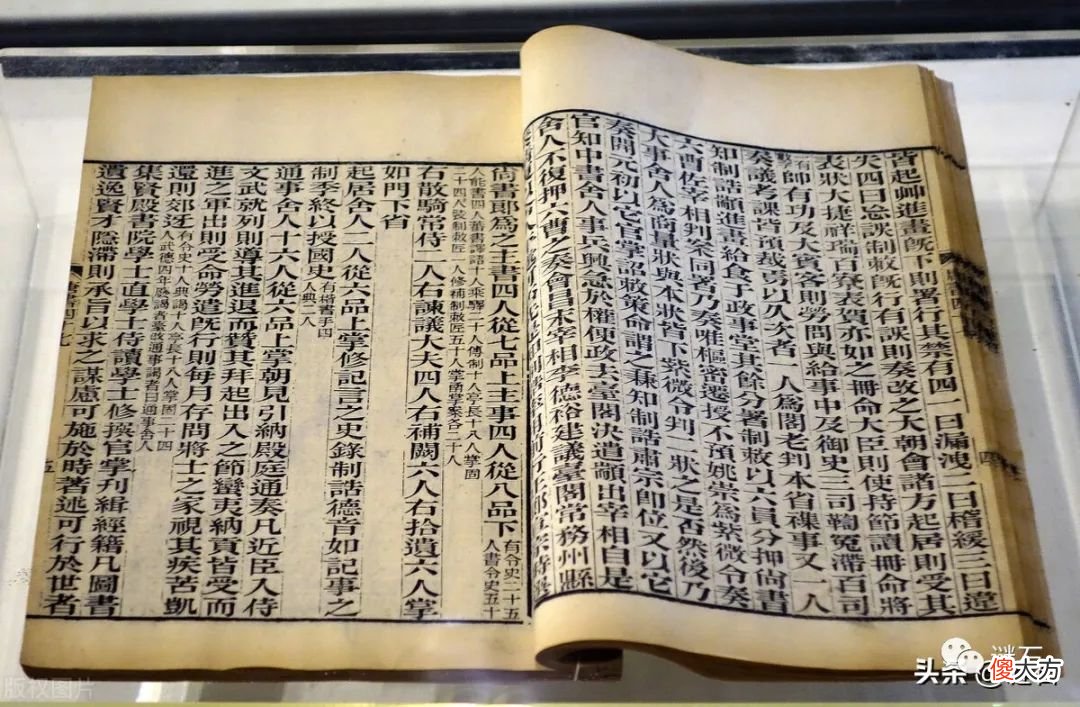 皆起艸進畫既下則署行其禁有四一曰漏洩二曰稽緩三曰違
失四曰忘誤制敕既行有誤則奏改之大朝會諸方起居則受其
表狀大捷祥瑞百寮表賀亦如之冊命大臣則使持節讀冊命將
帥有功及大賓客則勞問與給事中及御史三司鞫冤滯百司
奏議考課皆預裁焉以久次者一人爲閣老判本省襍事又一人
知制誥顓進畫給食于政事堂其餘分署制敕以六員分押尚書
六曹佐宰相判案同署乃奏唯樞密遷授不預姚崇爲紫微令奏
大事舍人爲商量狀與本狀皆下紫微令判二狀之是否然後乃
奏開元初以它官掌詔敕策命謂之兼知制誥肅宗即位又以它
官知中書舍人事兵興急於權便政去臺閣決遣顓出宰相自是
舍人不復押六曹之奏會昌末宰相李德裕建議臺閣常務州縣
尚書郎爲之主書四人從七品上主事四人從八品下
有令史二十五
人書令史五十
人能書四人蕃書譯語十人乘驛二十人傳制十人亭長十八人掌固
二十四人裝制敕匠一人修補制敕匠五十人掌函掌案各二十人
右散騎常侍二人右諫議大夫四人右補闕六人右拾遺六人掌
如門下省
起居舍人二人從六品上掌修記言之史錄制誥德音如記事之
制季終以授國史
有楷書手四
人典二人
通事舍人十六人從六品上掌朝見引納殿庭通奏凡近臣入侍
文武就列則導其進退而贊其拜起出入之節蠻夷納貢皆受而
進之軍出則受命勞遣既行則每月存問將士之家視其疾苦凱
還則郊迓
集賢殿書院學士直學士侍讀學士修撰官掌刊緝經籍凡圖書
遺逸賢才隱滯則承旨以求之謀慮可施於時著述可行於世者
五
版权图片
谜石
头条
傻大方